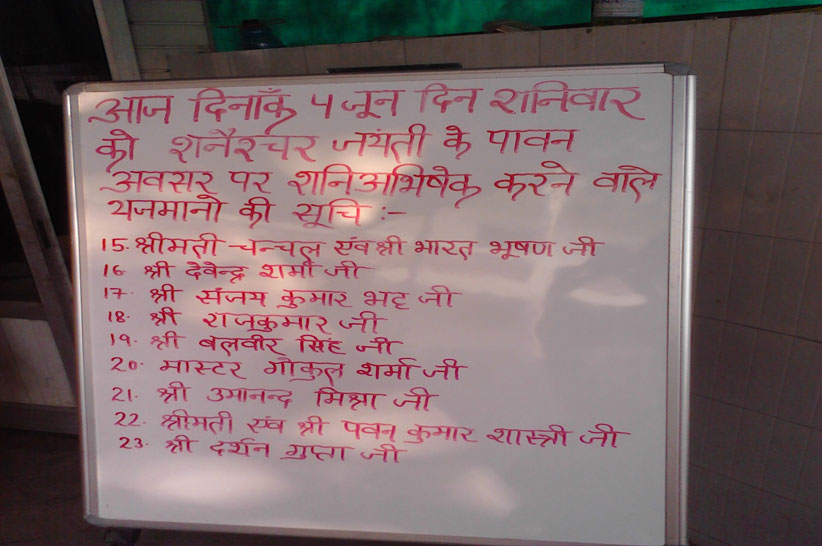 आज दिनाँक 4 जून दिन शनिवार
को शनैश्चर जयंती के पावन
अवसर पर शनिअभिषेक करने वाले
यजमानो की सूचि :-
15. श्रीमती चन्चल एंव श्री भारत भूषण जी
16 श्री देवेन्द्र शर्मा जी
17. श्री संजय कुमार भट्ट जी
18. श्री राजकुमार जी
19. श्री बलवीर सिंह जी
20. मास्टर गोकुल शर्मा जी
21. श्री उमानन्द मिश्रा जी
22. श्रीमती एंव श्री पवन कुमार शास्त्री जी
23. श्री दर्शन गुप्ता जी